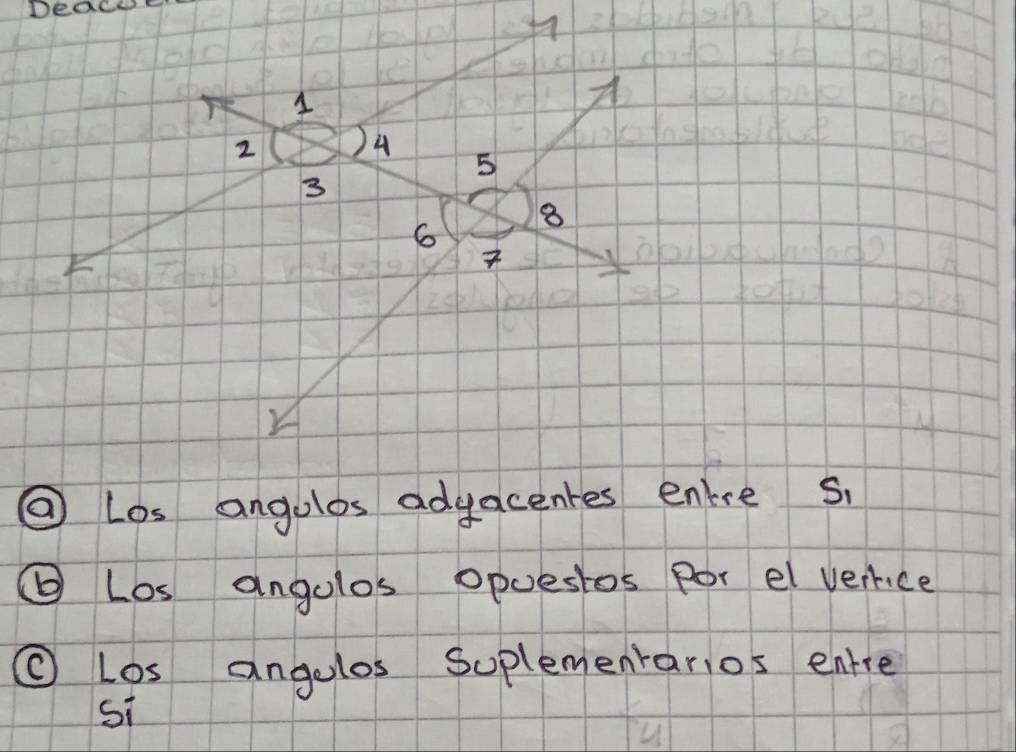 1
2
4
3
5
6
8
7
ⓐ Los angulos adyacentes entre Si
ⓑ Los angulos opuestos Por el vertice
ⓒ Los angulos Suplementarios entre
Sí